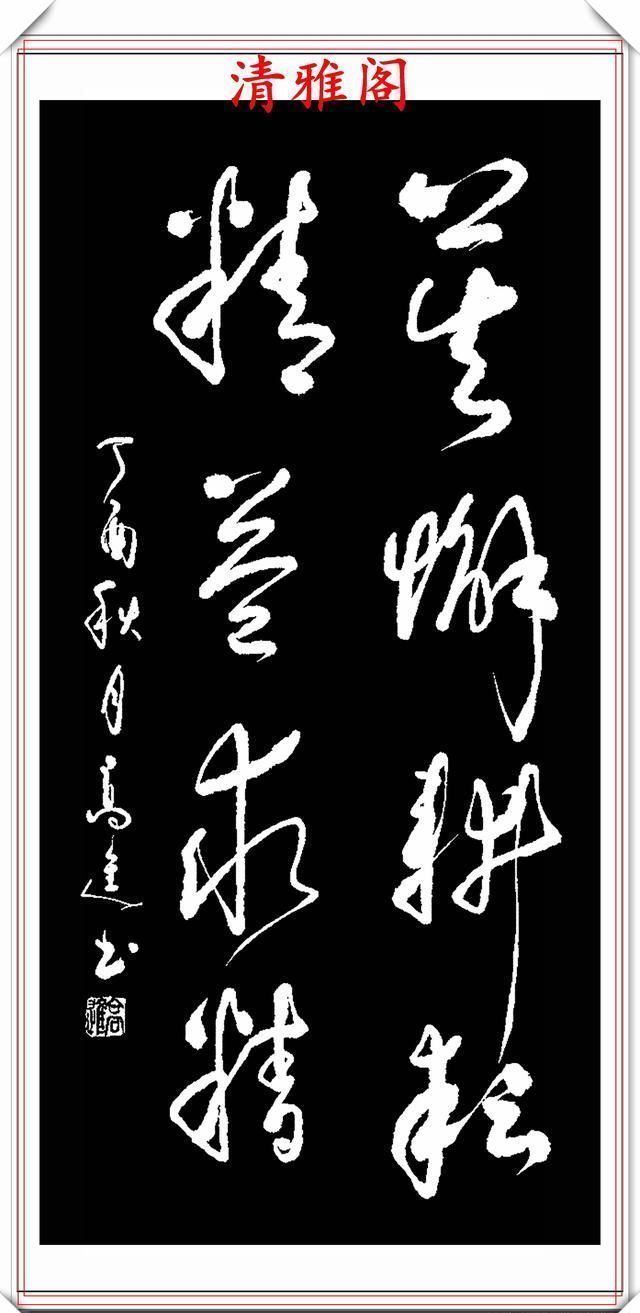 清雅阁
莫懈耕耘
精益求精
丁酉秋月高進书